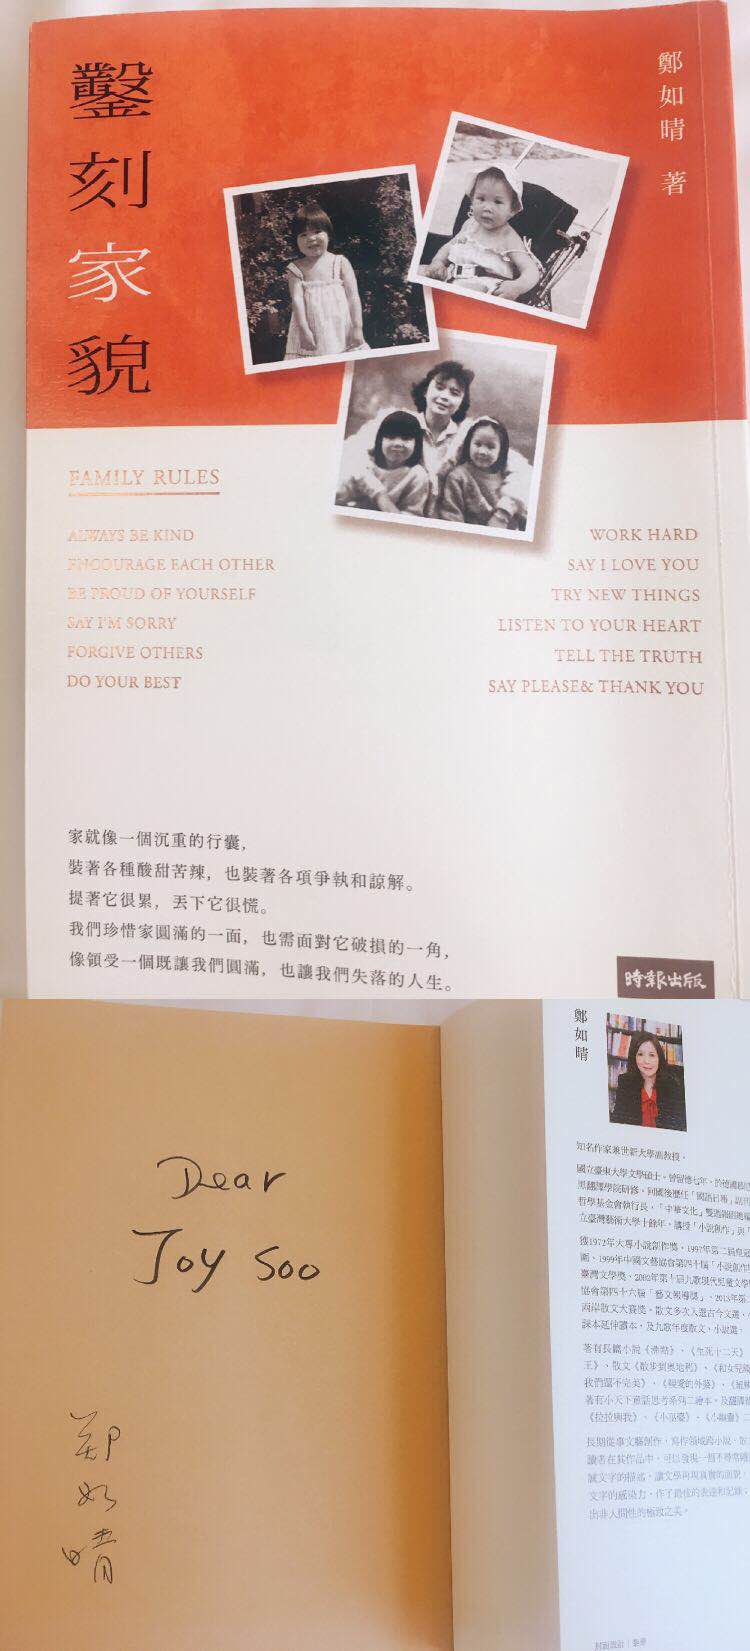 鑿刻家貌
鄭如晴 著
FAMILY RULES
ALWAYS BE KIND
ENCOURAGE EACH OTHER
BE PROUD OF YOURSELF
SAY I'M SORRY
FORGIVE OTHERS
DO YOUR BEST
WORK HARD
SAY I LOVE YOU
TRY NEW THINGS
LISTEN TO YOUR HEART
TELL THE TRUTH
SAY PLEASE& THANK YOU
家就像一個沉重的行囊，
裝著各種酸甜苦辣，也裝著各項爭執和諒解。
提著它很累，丟下它很慌。
我們珍惜家圓滿的一面，也需面對它破損的一角，
像領受一個既讓我們圓滿，也讓我們失落的人生。
時報出版
Dear
Joy Soo
鄭如晴
鄭如晴
知名作家兼世新大學副教授。
國立臺東大學文學碩士。曾留德七年，於德國慕尼
黑翻譯學院研修。回國後歷任「國語日報」副刊
哲學基金會執行長、「中華文化」雙週
立臺灣藝術大學十餘年，講授「小說創作」與「
獲1972年大專小說創作獎、1997年第二屆
1999年中國文藝協會第四十屆「小說創作
臺灣文學獎、2002年第十屆九歌現代兒童文學
協會第四十六屆「藝文報導獎」、2013年第
兩岸散文大賽獎。散文多次入選古今文選、
課本延伸讀本，及九歌年度散文、小說選。
著有長篇小說《沸點》、《生死十二天》
王》、散文《散步到奧地利》、《和女兒
我們還不完美》、《親愛的外婆》、
著有小天下童話思考系列二繪本。及翻譯
《拉拉與我》、《小巫婆》、《小幽靈》二
長期從事文藝創作，寫作領域跨小說、散
讀者在其作品中，可以發現一個不尋常
誠文字的描述，讓文學再現真實的面貌，
文字的感染力，作了最佳的表達和記錄；
出非人間性的極致之美。
封面設計